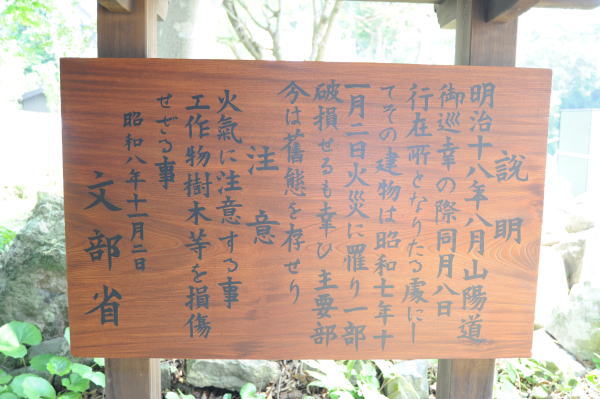 説明
明治十八年八月山陽道
御巡幸の際同月八日
行在所となりたる處にし
てその建物は昭和七年十
一月二日火災に罹り一部
破損せるも幸ひ主要部
今は舊態を存せり
注意
火氣に注意する事
工作物樹木等を損傷
せざる事
昭和八年十一月二日
文部省